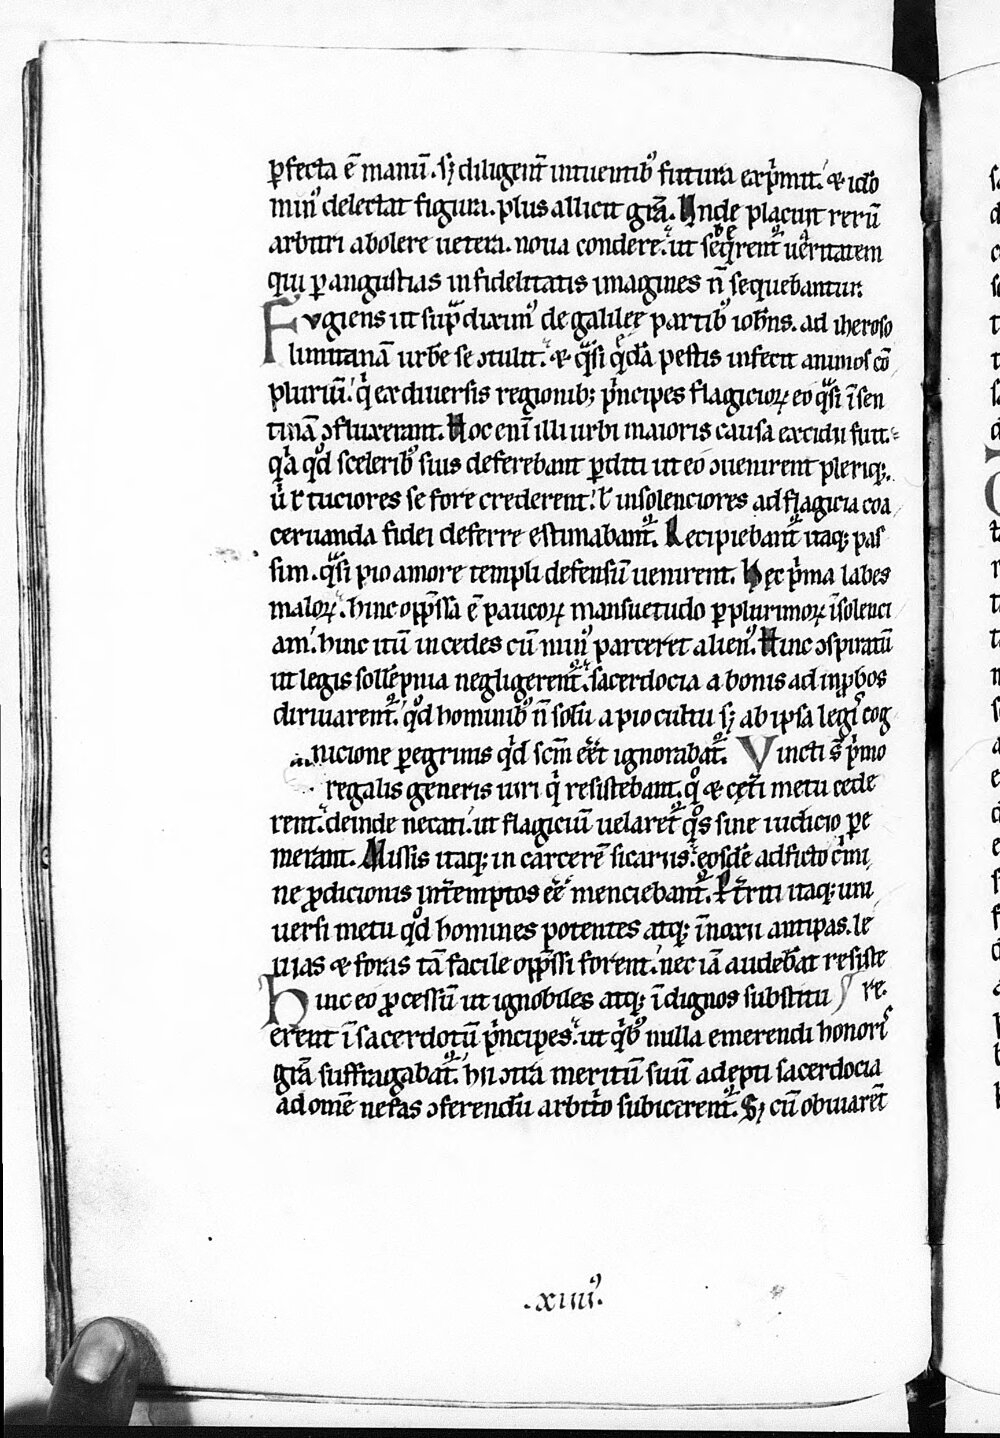 ꝑfecta ē manū. sꝫ diligent̄ intuentibꝰ futura exp̄mit. ⁊ ido
minꝰ delectat figura. plus allicit grā. Unde placuit rerū
arbitri abolere uetera. noua condere. ut seq̄rent᷑ ueritatem
qui ꝑ angustias infidelitatis imagines n̄ sequebantur.
Fugiens ut sup̄ diximꝰ de galilee partibꝰ ioh̄ns. ad iheroso
limitanā urbē se ↄtulit. ⁊ qᷓsi q̄dā pestis infecit animos cō
pluriū. q̇ ex diuersis regionibꝫ p̄ncipes flagicioꝝ eo qᷓsi ī sen
tinā ↄfluxerant. Hoc enī illi urbi maioris causa excidii fuit.
qᷓa qd̄ sceleribꝰ suis deferebant ꝑditi ut eo ↄuenirent pleriqꝫ.
ut̄ tuciores se fore crederent. ł insolenciores ad flagicia coa
ceruanda fidei deferre estimabant᷑. Recipiebant᷑ itaqꝫ pas
sim. qᷓsi pio amore templi defensū uenirent. Hec p̄ma labes
maloꝝ. hinc opp̄ssa ē paucoꝝ mansuetudo ꝑ plurimoꝝ īsolenci
am. hinc itū in cedes cū minꝰ parceret alienꝰ. Hinc ↄspiratū
ut legis sollēpnia negligerent᷑. sacerdocia a bonis ad inꝓbos
diriuarent᷑. qd̄ hominibꝰ n̄ solū a pio cultu sꝫ ab ipsa legꝭ cog
nicione peregrinis qd̄ scm̄ eēt ignorabat᷑. Vincti s̄ p̄mo
regalis generis uiri q̇ resistebant. qͦ ⁊ cet̄i metu cede
rent. deinde necati. ut flagiciū uelaret᷑ qͦs sine iudicio ꝑe
merant. Missis itaqꝫ in carcerē sicariis. eosdē ad ficto c̄mi
ne ꝓdicionis int̄emptos eē menciebant᷑. T̄riti itaqꝫ uni
uersi metu qd̄ homines potentes atqꝫ īnoxii antipas. le
uias ⁊ foras tā facile opp̄ssi forent. nec iā audebāt resiste
Hinc eo ꝓcessū ut ignobiles atqꝫ īdignos substitu re.
erent ī sacerdotū p̄ncipes. ut q̇bꝰ nulla emerendi honorꝭ
grā suffragabat᷑. hii ↄtra meritū suū adepti sacerdocia
ad omē nefas ↄferendū arbit̄o subicerent᷑. Sꝫ cū obuiaret̄
.xiiiiꝰ.